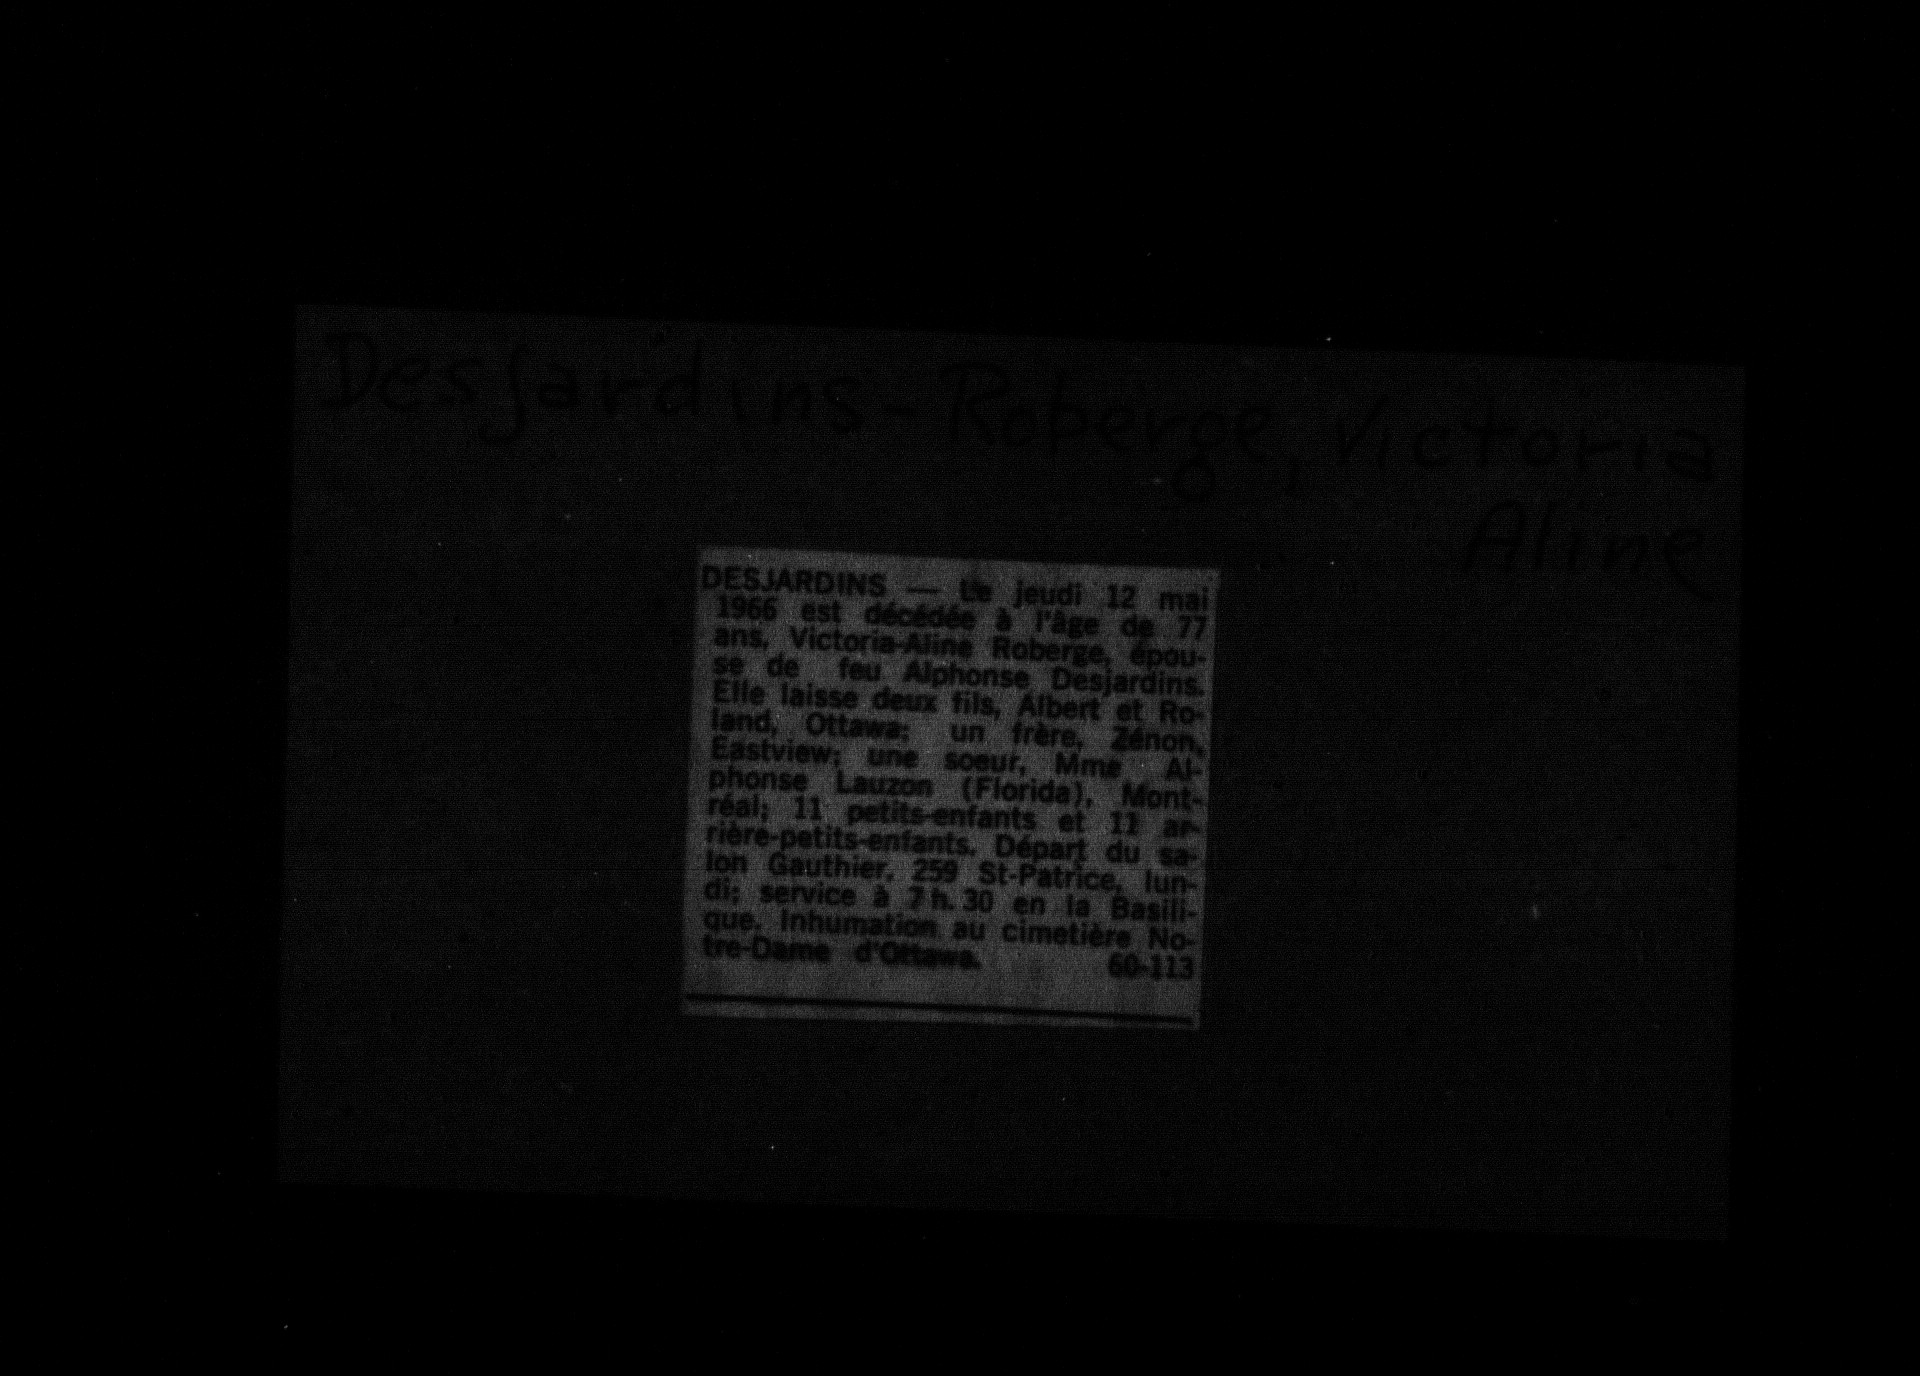 Desjardins-Roberge, Victoria
Aline
DESJARDINS — Le jeudi 12 mai
1966 est décédée à l'âge de 77
ans, Victoria-Aline Roberge, épou-
se de feu Alphonse Desjardins.
Elle laisse deux fils, Albert et Ro-
land, Ottawa; un frère, Zénon,
Eastview; une soeur, Mme Al-
phonse Lauzon (Florida), Mont-
réal; 11 petits-enfants et 11 ar-
rière-petits-enfants. Départ du sa-
lon Gauthier, 259 St-Patrice, lun-
di; service à 7 h. 30 en la Basili-
que. Inhumation au cimetière No-
tre-Dame d'Ottawa. 60-113